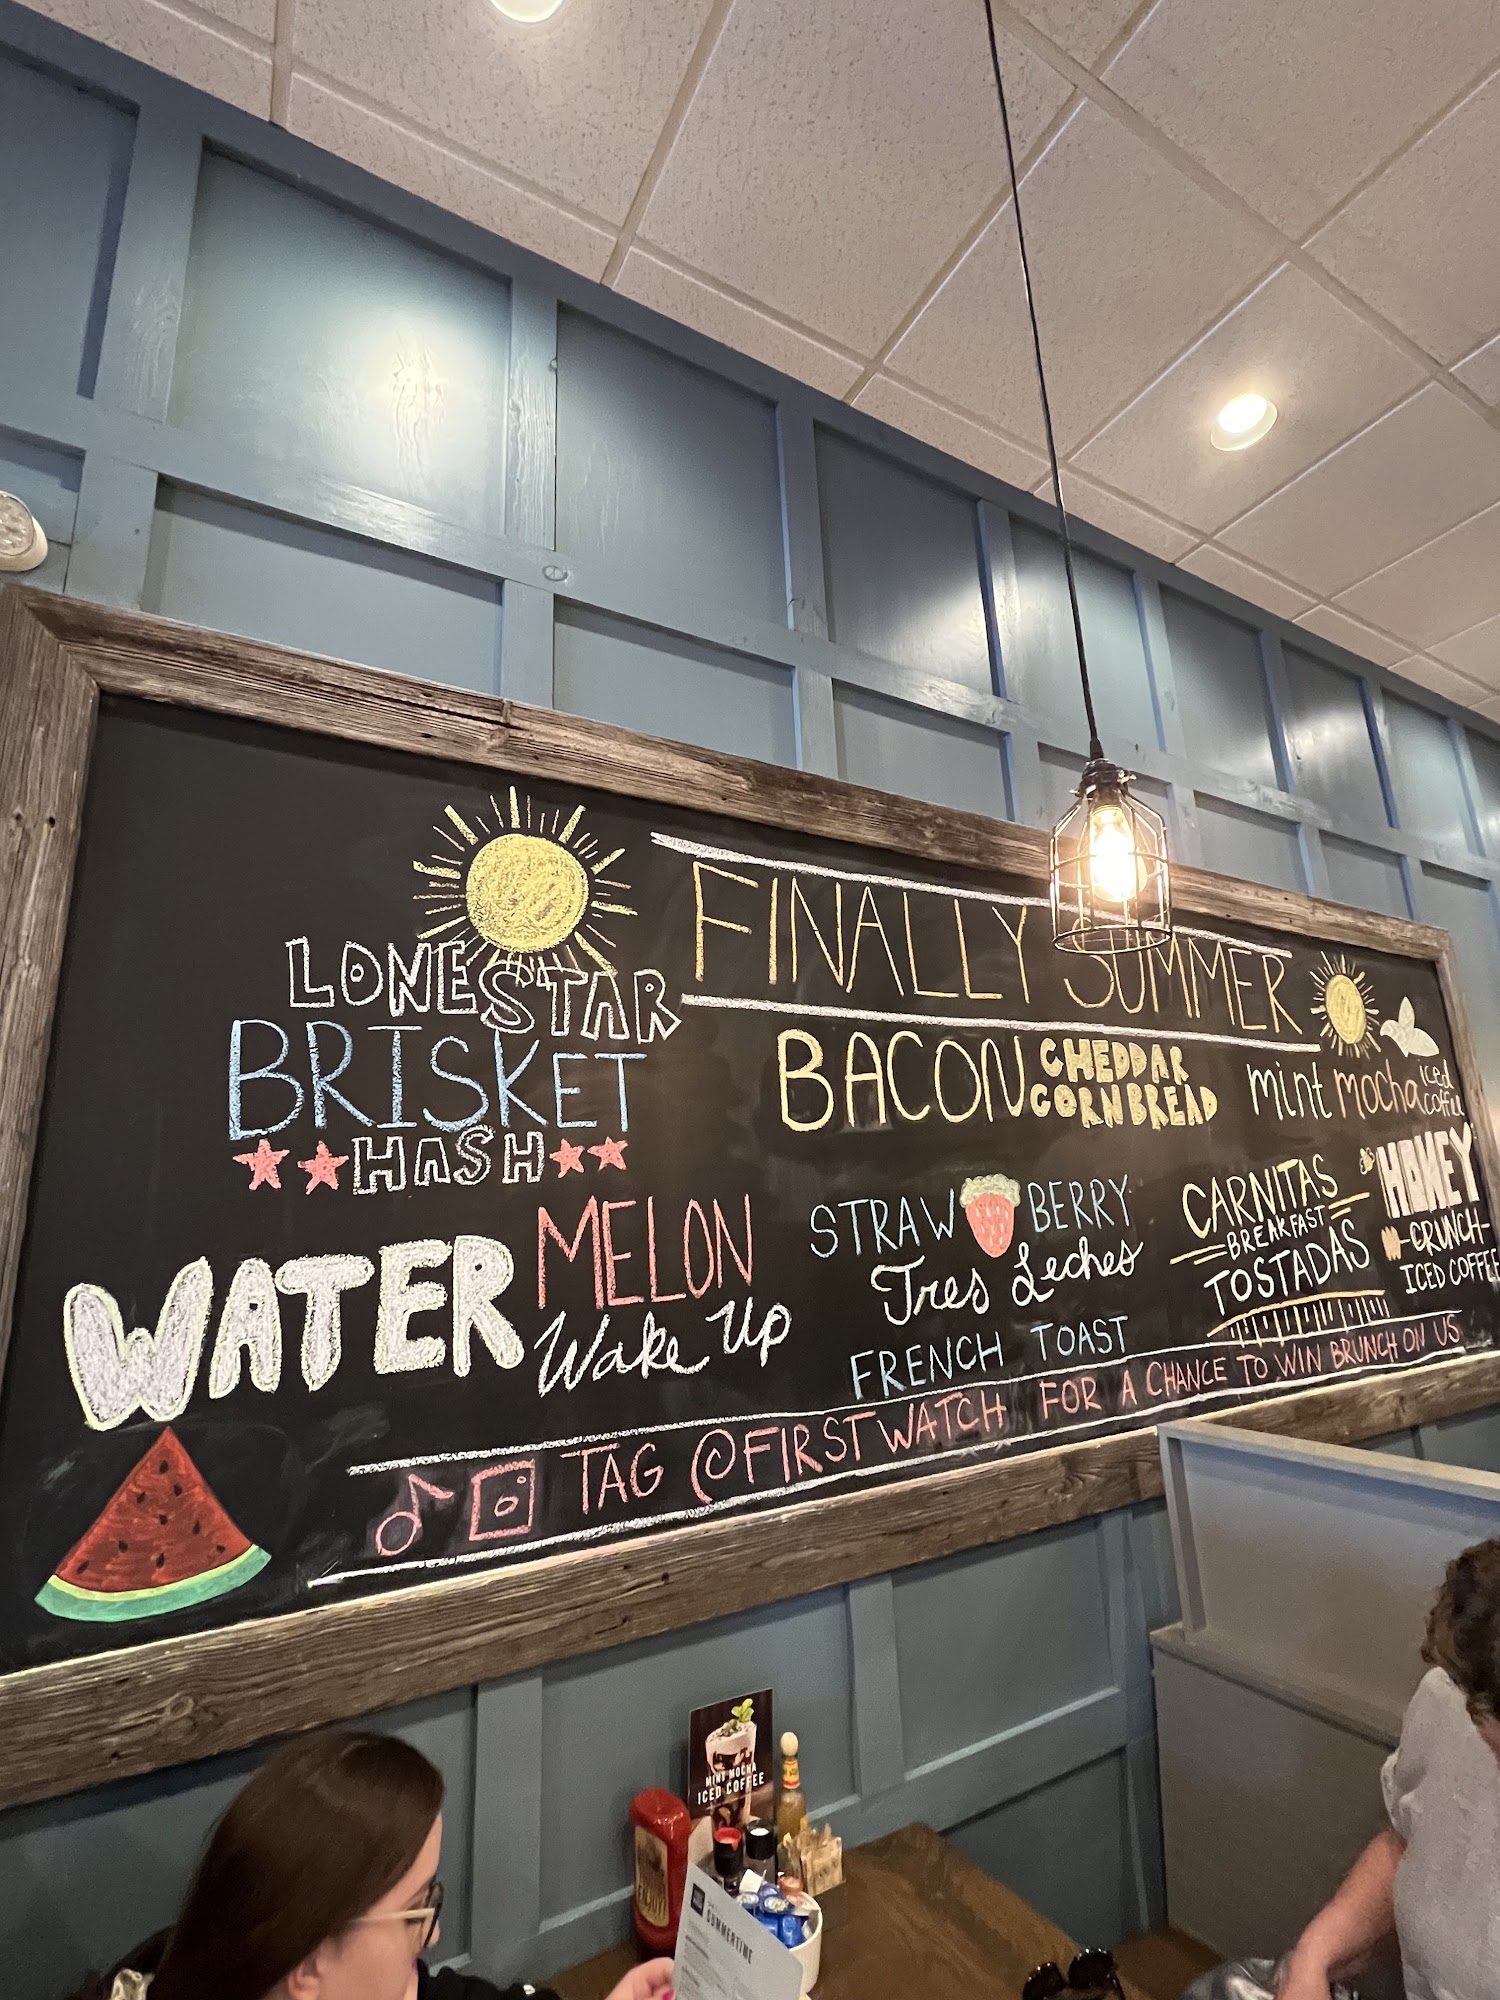 FINALLY SUMMER
LONESTAR
BRISKET
HASH
BACON CHEDDAR
CORNBREAD
mint mocha iced
coffee
WATERMELON
Wake Up
STRAWBERRY
Tres Leches
FRENCH TOAST
CARNITAS
BREAKFAST
TOSTADAS
HONEY
CRUNCH
ICED COFFEE
TAG @FIRSTWATCH FOR A CHANCE TO WIN BRUNCH ON US
MINT MOCHA
ICED COFFEE
SUMMERTIME